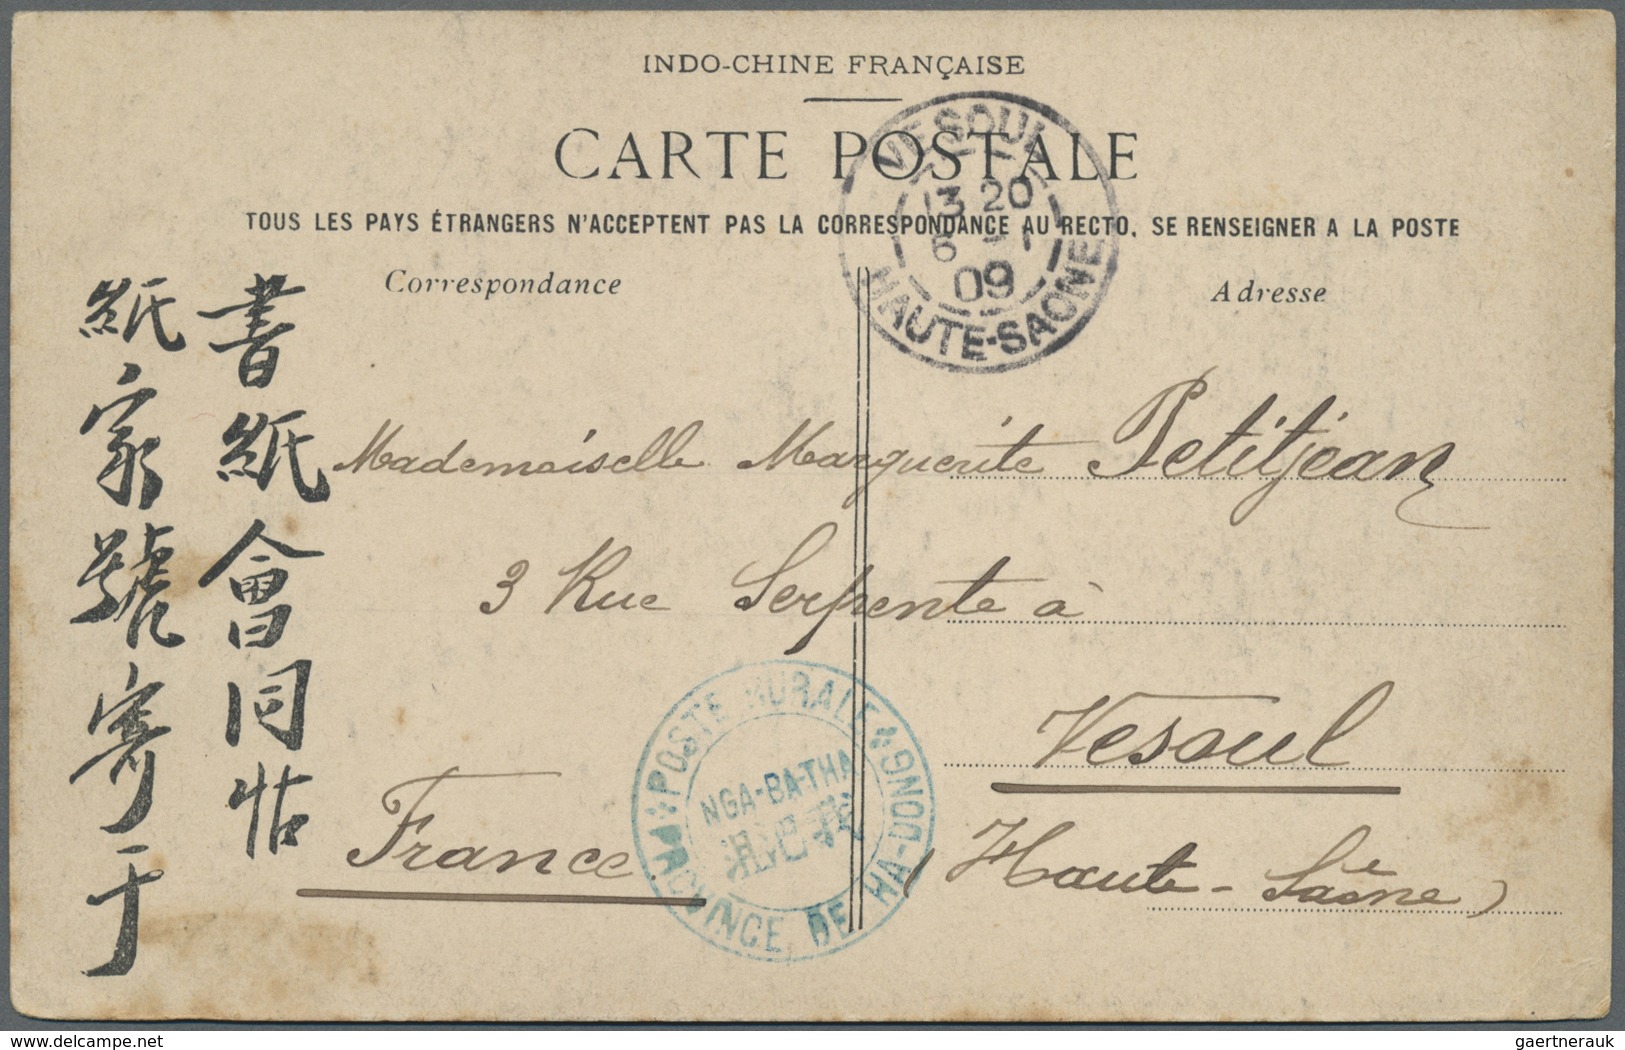 INDO-CHINE FRANÇAISE
CARTE POSTALE
TOUS LES PAYS ÉTRANGERS N'ACCEPTENT PAS LA CORRESPONDANCE AU RECTO, SE RENSEIGNER A LA POSTE
Correspondance
Adresse
VESOUL
13 20
6 -1
09
HAUTE-SAONE
書紙會同帖
紙家號寄于
Mademoiselle Marguerite Petitjean
3 Rue Serpente à
Vesoul
France
(Haute-Saône)
POSTE RURALE
NGA-BA-THA
PROVINCE DE HA-DONG
www.delcampe.net
gaertnerauk